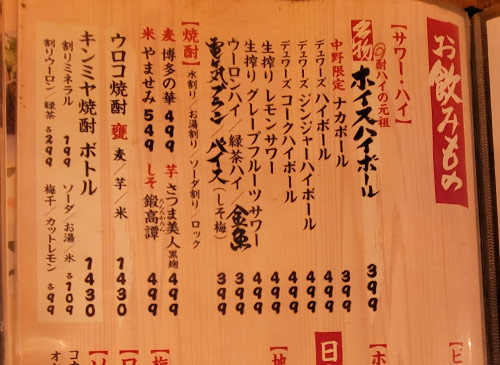 お飲みもの
【サワー・ハイ】
酎ハイの元祖
名物 ホイスハイボール 399
中野限定 ナカボール 399
デュワーズ ハイボール 499
デュワーズ ジンジャーハイボール 499
デュワーズ コークハイボール 499
生搾り レモンサワー 499
生搾り グレープフルーツサワー 499
ウーロンハイ/緑茶ハイ/金魚 399
電気ブラン/バイス(しそ梅) 399
【焼酎】 水割り/お湯割り/ソーダ割り/ロック
麦 博多の華 499 芋 さつま美人 黒麹 499
米 やませみ 549 しそ 鍛高譚 たんたかたん 499
ウロコ焼酎 甕 麦/芋/米 1430
キンミヤ焼酎 ボトル 1430
割りミネラル 199 ソーダ/お湯/氷 各109
割りウーロン/緑茶 各299 梅干/カットレモン 各99